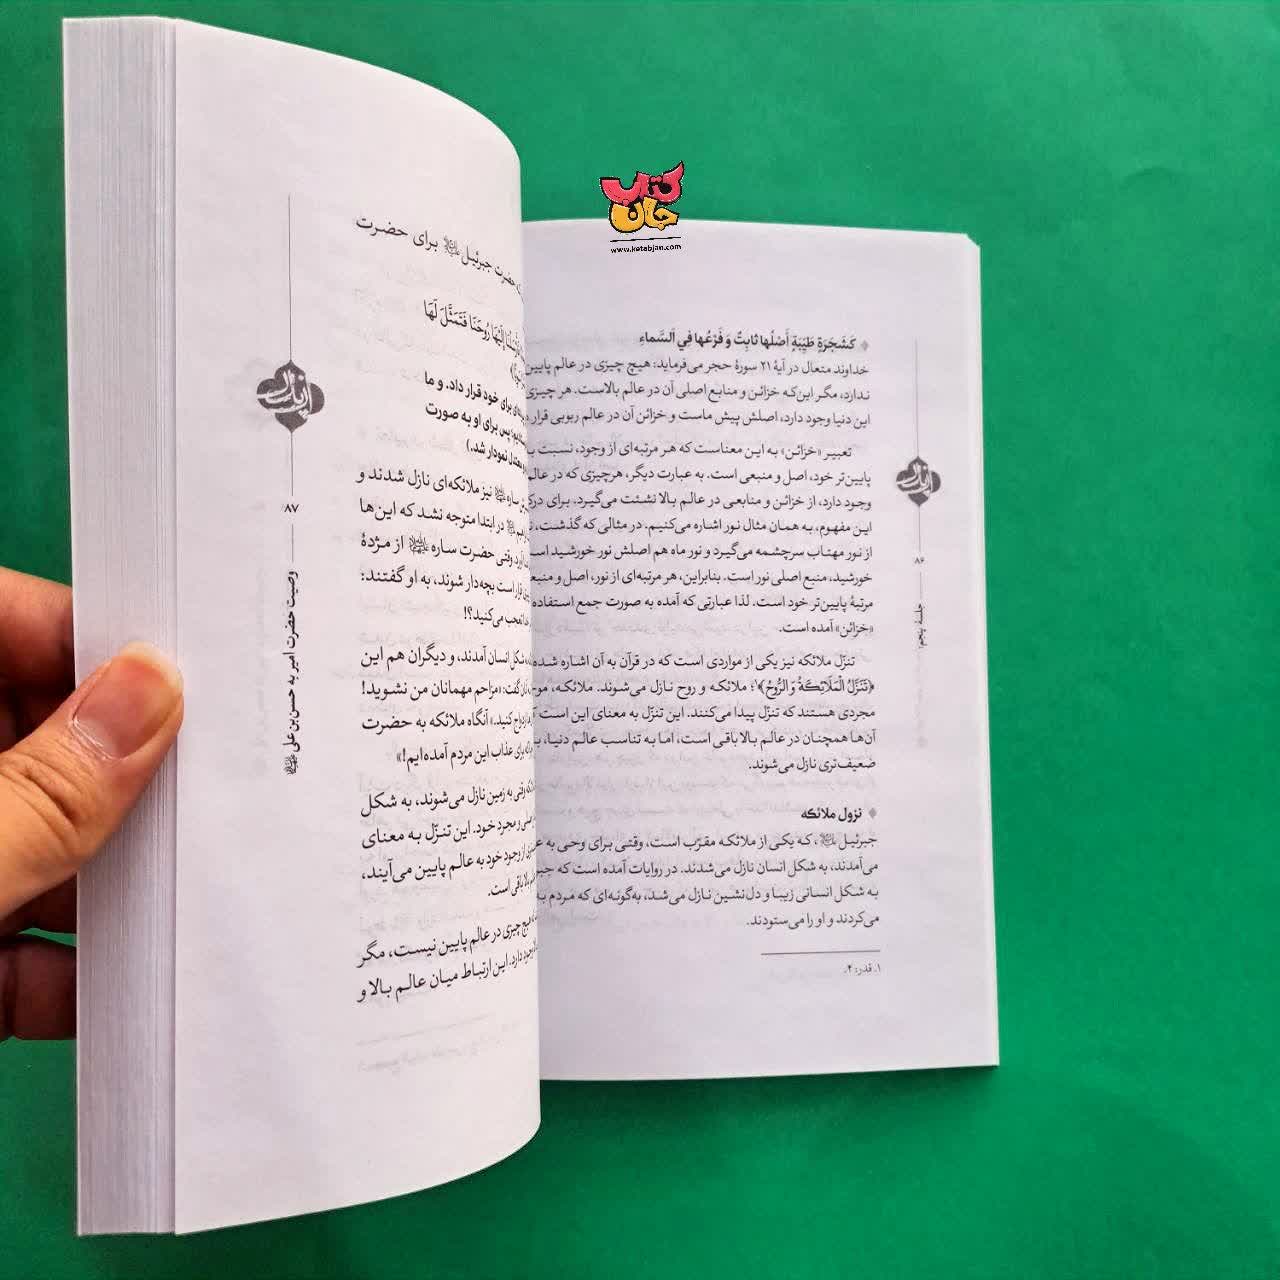 کتاب
جان
www.ketabjan.com
کَشَجَرَةٍ طَیِّبَةٍ أَصْلُها ثابِتٌ وَ فَرْعُها فِي السَّماءِ
خداوند متعال در آیهٔ ۲۱ سورهٔ حجر می‌فرماید: هیچ چیزی در عالم پایین
ندارد، مگر این‌که خزائن و منابع اصلی آن در عالم بالاست. هر چیزی
این دنیا وجود دارد، اصلش پیش ماست و خزائن آن در عالم ربوبی قرار
تعبیر «خزائن» به این معناست که هر مرتبه‌ای از وجود، نسبت
پایین‌تر خود، اصل و منبعی است. به عبارت دیگر، هرچیزی که در عالم
وجود دارد، از خزائن و منابعی در عالم بالا نشئت می‌گیرد. برای
این مفهوم، به همان مثال نور اشاره می‌کنیم. در مثالی که گذشت،
از نور مهتاب سرچشمه می‌گیرد و نور ماه هم اصلش نور خورشید
خورشید، منبع اصلی نور است. بنابراین، هر مرتبه‌ای از نور، اصل و
مرتبهٔ پایین‌تر خود است. لذا عبارتی که آمده به صورت جمع استفاده
«خزائن» آمده است.
تنزّل ملائکه نیز یکی از مواردی است که در قرآن به آن اشاره
﴿تَنَزَّلُ الْمَلَائِكَةُ وَ الرُّوحُ﴾۱؛ ملائکه و روح نازل می‌شوند. ملائکه،
مجردی هستند که تنزّل پیدا می‌کنند. این تنزّل به معنای این است
آن‌ها همچنان در عالم بالا باقی است، اما به تناسب عالم دنیا،
ضعیف‌تری نازل می‌شوند.
نزول ملائکه
جبرئیل، که یکی از ملائکه مقرّب است، وقتی برای وحی به
می‌آمدند، به شکل انسان نازل می‌شدند. در روایات آمده است که
به شکل انسانی زیبا و دل‌نشین نازل می‌شد، به‌گونه‌ای که مردم
می‌کردند و او را می‌ستودند.
۱. قدر: ۴.
۸۶
جلسهٔ پنجم
حضرت جبرئیل برای حضرت
إِلَيْهَا رُوحَنَا فَتَمَثَّلَ لَهَا
برای خود قرار داد. و ما
پس برای او به صورت
معتدل نمودار شد.)
ساره نیز ملائکه‌ای نازل شدند و
در ابتدا متوجه نشد که این‌ها
وقتی حضرت ساره از مژدهٔ
قرار است بچه‌دار شوند، به او گفتند:
تعجب می‌کنید؟!
شکل انسان آمدند، و دیگران هم این
گفت: «مزاحم مهمانان من نشوید!
ازدواج کنید.» آنگاه ملائکه به حضرت
برای عذاب این مردم آمده‌ایم!»
وقتی به زمین نازل می‌شوند، به شکل
و مجرد خود. این تنزّل به معنای
از وجود خود به عالم پایین می‌آیند،
بالا باقی است.
هیچ چیزی در عالم پایین نیست، مگر
وجود دارد. این ارتباط میان عالم بالا و
۸۷
وصیت حضرت امیر به حسن بن علی